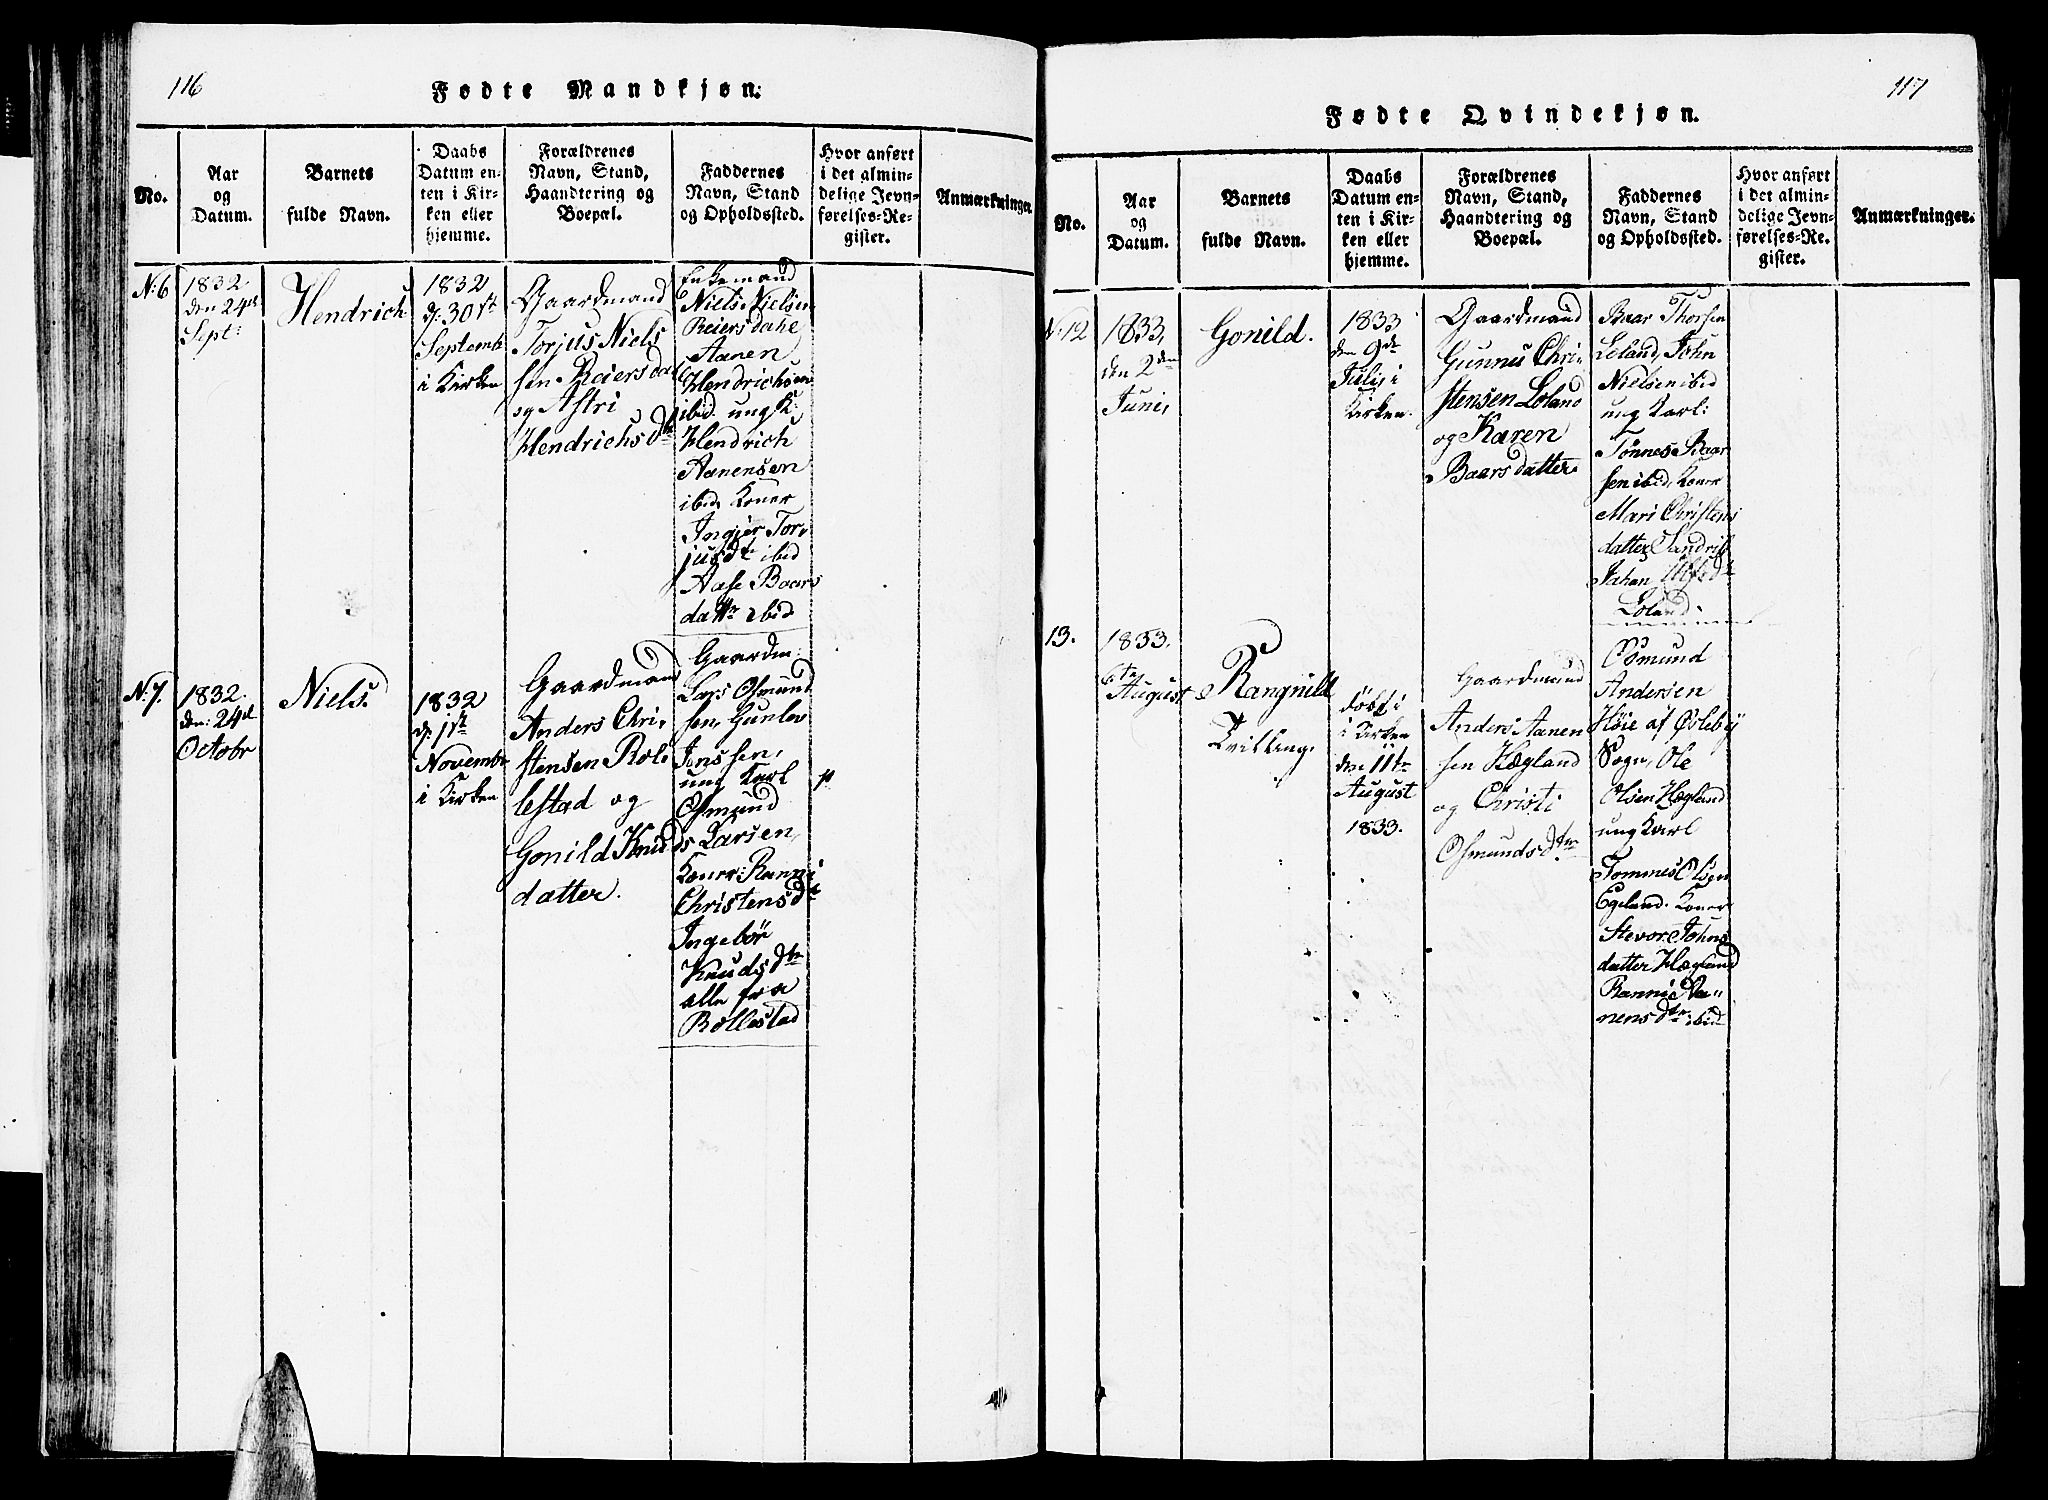 116
Fødte Mandkjøn.
No.
Aar
og
Datum.
Barnets
fulde Navn.
Daabs
Datum en-
ten i Kir-
ken eller
hjemme.
Forældrenes
Navn, Stand,
Haandtering og
Boepæl.
Faddernes
Navn, Stand
og Opholdssted.
Hvor anført
i det almin-
delige Jevn-
førelses-Re-
gister.
Anmærkninger.
N:6
1832
den 24de
Sept:
Hendrich
1832
d: 30te
Septemb
i Kirken
Gaardmand
Torjus Niels
sen Reiersdal
og Astri
Hendrichsdtr
Enkemand
Niels Nielsen
Reiersdahl
Aanen
Hendrichsen
ibid. ung K:
Hendrich
Aanensen
ibid, Koner
Ingier Tor,
jusdtr ibid
Aase Baars
dattr ibid
N:7.
1832.
den: 24de
Octobr
Niels.
1832
d: 1ste
Novembr
i Kirken
Gaardmand
Anders Chri,
stensen Rol,
lestad og
Gonild Knuds
datter.
Gaardm:
Lars Osmund
sen, Gunlev
Jenssen,
ung Karl
Osmund
Larsen,
Koner: Ranni
Christensdt
Ingebor
Knudsdtr
alle fra
Rollestad
117
Fødte Qvindekjøn.
No.
Aar
og
Datum.
Barnets
fulde Navn.
Daabs
Datum en-
ten i Kir-
ken eller
hjemme.
Forældrenes
Navn, Stand,
Haandtering og
Boepæl.
Faddernes
Navn, Stand
og Opholdssted.
Hvor anført
i det almin-
delige Jevn-
førelses-Re-
gister.
Anmærkninger.
N:12
1833,
den 2den
Juni,
Gonild.
1833
den 9de
Juli, i
Kirken.
Gaardmand
Gunnu Chri,
stensen Loland
og Karen
Baarsdatter
Baar Thorsen
Loland, John
Nielsen ibid
ung Karl:
Tønnes Baar
sen ibid, Koner
Mari Christens
datter
Loland.
13.
1833.
6te
August
Rangnild
døbt i
i Kirken
den 11te
August
1833.
Gaardmand
Anders Aanen
sen Hægland
og Christi
Osmundsdtr
Osmund
Andersen
Høie af Øslebÿ
Sogn, Ole
Olsen Hægland
ung Karl
Tommes Olsen
Egeland. Koner
Stevor Johns
datter Hægland
Rannie Aa,,
nensdtr ibid